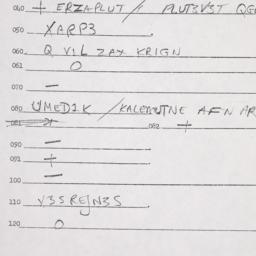 040 + ERZAPLUT / PLUTSVST
050 XARP3
060 Q V1L ZAX KRIGN
061 O
070 —
080 UMEDIK / KALEBUTNE AFN AR
081 082 +
090 —
091 +
100 —
110 V3SREJN3S
120 O